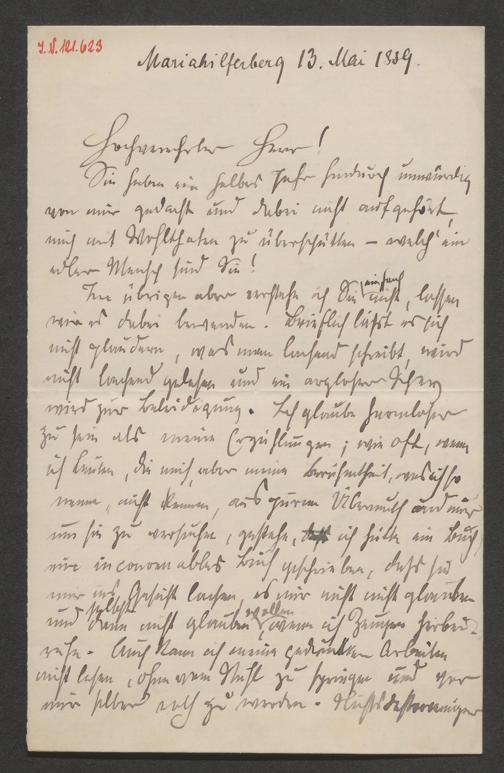 I.N. 121.623
Mariahilferberg 13. Mai 1889.
Hochverehrter Herr!
Sie haben ein halbes Jahr hindurch unwürdig
von mir gedacht und dabei nicht aufgehört,
mich mit Wohlthaten zu überschütten – welch' ein
edler Mensch sind Sie!
Im übrigen aber verstehe ich Sie einfach nicht, lassen
wir es dabei bewenden. Brieflich läßt es sich
nicht plaudern, was man lachend schreibt, wird
nicht lachend gelesen und ein argloser Scherz
wird zur Beleidigung. Ich glaube harmloser
zu sein als meine Erzählungen; wie oft, wenn
ich Leuten, die mich, aber meine Berühmtheit, was ich so
nenne, nicht kennen, aus purem Übermuth und nur
um sie zu versuchen, gestehe, ich hätte ein Buch
ein inconorables Buch geschrieben, daß sie
mir ins Gesicht lachen, es mir nicht glauben
und selbst dann nicht glauben wollen, wenn ich Zeugen herbei-
rufe. Auch kann ich meine gedruckten Arbeiten
nicht lesen, ohne vom Stuhl zu springen und vor
mir selber roth zu werden. Nichtsdestoweniger